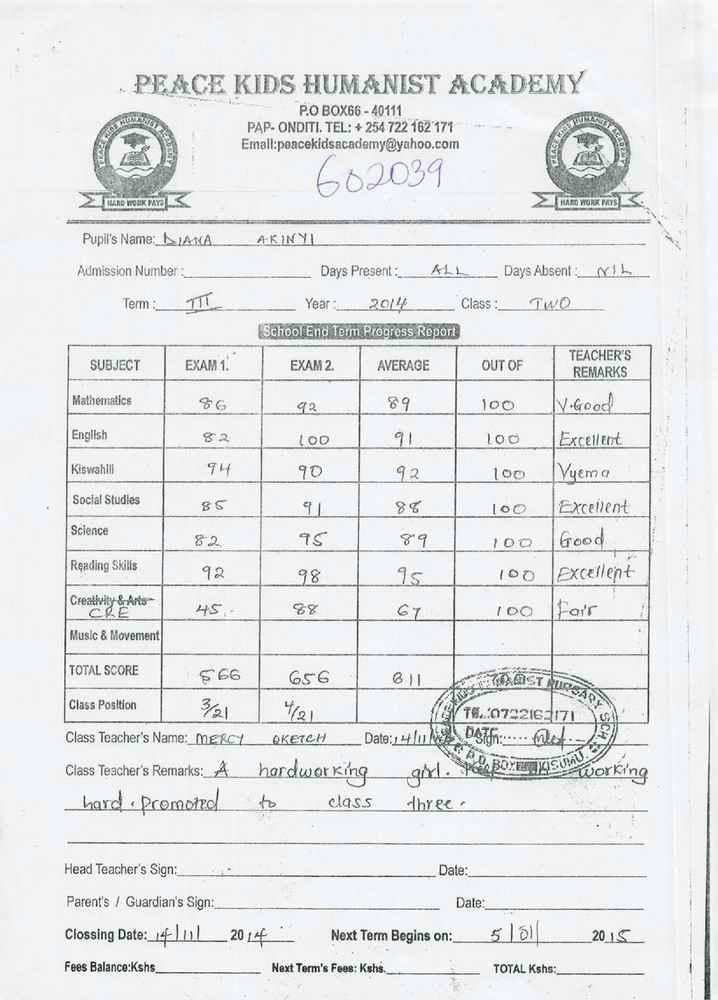 PEACE KIDS HUMANIST ACADEMY
P.O BOX66 - 40111
PAP- ONDITI. TEL: + 254 722 162 171
Email:peacekidsacademy@yahoo.com
PEACE KIDS HUMANIST ACADEMY
HARD WORK PAYS
602039
PEACE KIDS HUMANIST ACADEMY
HARD WORK PAYS
Pupil's Name: DIANA AKINYI
Admission Number : Days Present : ALL Days Absent : NIL
Term : III Year : 2014 Class : TWO
School End Term Progress Report
SUBJECT EXAM 1. EXAM 2. AVERAGE OUT OF TEACHER'S REMARKS
Mathematics 86 92 89 100 V.Good
English 82 100 91 100 Excellent
Kiswahili 94 90 92 100 Vyema
Social Studies 85 91 88 100 Excellent
Science 82 95 89 100 Good
Reading Skills 92 98 95 100 Excellent
Creativity & Arts
CRE 45 88 67 100 Fair
Music & Movement
TOTAL SCORE 566 656 611
Class Position 3/21 4/21
TEL.:0722162171
DATE
P.O. BOX KISUMU
Class Teacher's Name: MERCY OKETCH Date: 14/11/ Sign:
Class Teacher's Remarks: A hardworking girl. working
hard. Promoted to class three.
Head Teacher's Sign: Date:
Parent's / Guardian's Sign: Date:
Clossing Date: 14/11/ 2014 Next Term Begins on: 5/01/ 2015
Fees Balance:Kshs. Next Term's Fees: Kshs. TOTAL Kshs: